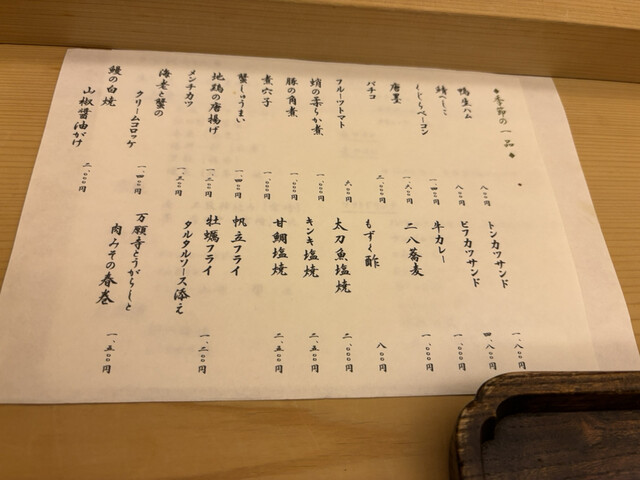 ◆季節の一品◆
鴨生ハム 八〇〇円
鯖へしこ 八〇〇円
くじらベーコン 一、四〇〇円
唐墨 一、六〇〇円
バチコ 二、〇〇〇円
フルーツトマト 六〇〇円
蛸の柔らか煮 一、〇〇〇円
豚の角煮 一、〇〇〇円
煮穴子 一、〇〇〇円
蟹しゅうまい 一、四〇〇円
地鶏の唐揚げ 一、二〇〇円
メンチカツ 一、二〇〇円
海老と蟹の
クリームコロッケ 一、四〇〇円
鰻の白焼
山椒醤油がけ 〇〇〇円
トンカツサンド 一、八〇〇円
ビフカツサンド 四、八〇〇円
牛カレー 一、〇〇〇円
二八蕎麦 一、〇〇〇円
もずく酢 八〇〇円
太刀魚塩焼 二、〇〇〇円
キンキ塩焼 二、五〇〇円
甘鯛塩焼 二、五〇〇円
帆立フライ
牡蠣フライ
タルタルソース添え 一、二〇〇円
万願寺とうがらしと
肉みその春巻 一、五〇〇円